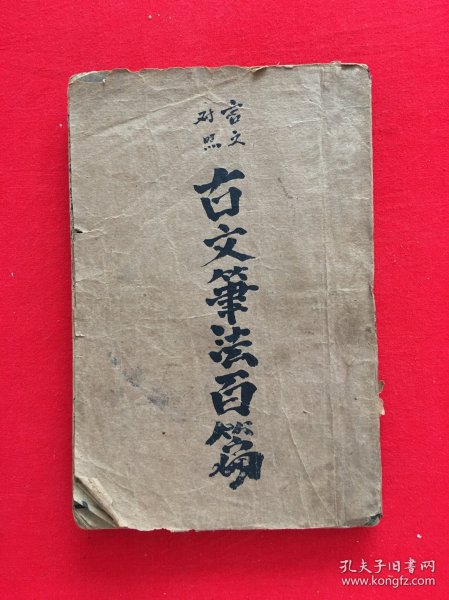 言文
对照
古文筆法百篇
孔夫子旧书网
www.kongfz.com